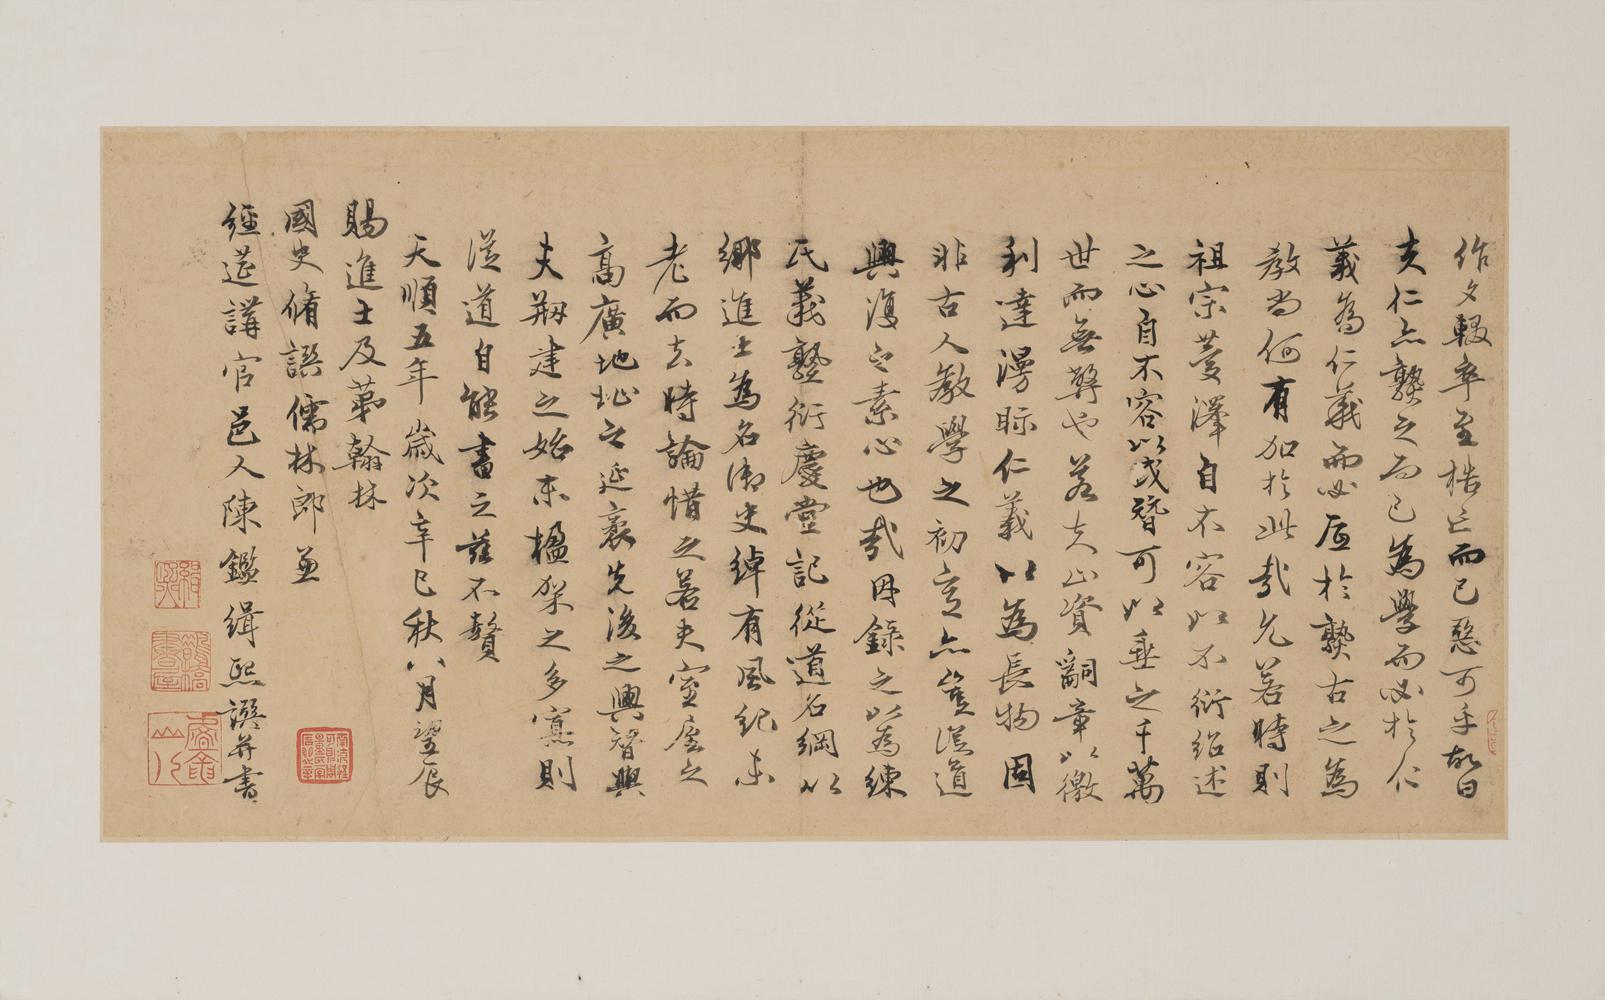 作夕輟卒至梏亡而已惡可乎故曰
夫仁亦熟之而已為學而必於仁
義為仁義而必底於熟古之為
教尚何有加於此哉允若時則
祖宗慶澤自不容以不衍紹述
之心自不容以或替可以垂之千萬
世而無弊也若夫山資嗣章以徼
利達漫眎仁義以為長物固
非古人教學之初意亦豈從道
興復之素心也哉因錄之以為練
氏義塾衍慶堂記從道名綱以
鄉進士為名御史綽有風紀未
老而去時論惜之若夫室廬之
高廣地址之延袤先後之興替與
夫剏建之始末楹架之多寡則
從道自能書之茲不贅
天順五年歲次辛巳秋八月望辰
賜進士及第翰林
國史脩譔儒林郎兼
經筵講官邑人陳鑑緝熙譔并書